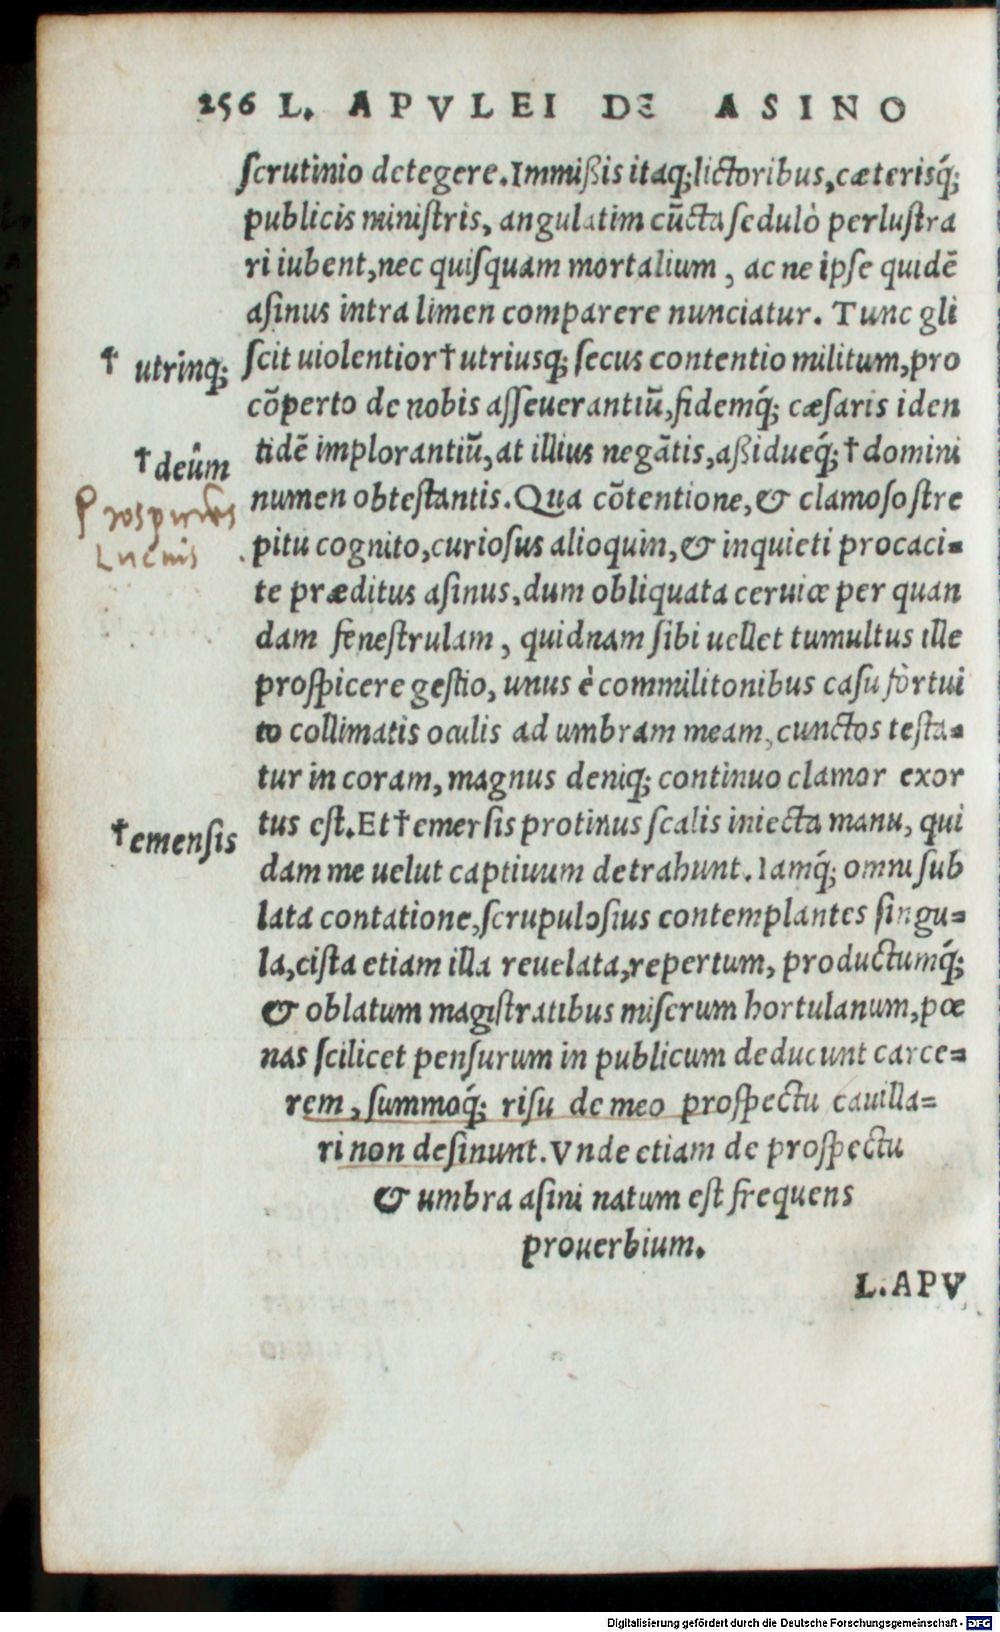 256 L. APVLEI DE ASINO
ſcrutinio detegere. Immißis itaq; lictoribus, cæterisq́;
publicis miniſtris, angulatim cūcta ſedulò perluſtra
ri iubent, nec quiſquam mortalium, ac ne ipſe quidē
aſinus intra limen comparere nunciatur. Tunc gli
† utrinq;
ſcit uiolentior † utriusq; ſecus contentio militum, pro
cōperto de nobis aſſeuerantiū, fidemq́; cæſaris iden
† deûm
tidē implorantiū, at illius negātis, aßidueq́; † domini
numen obteſtantis. Qua cōtentione, & clamoſo ſtre
Lucius
pitu cognito, curioſus alioquin, & inquieti procaci=
te præditus aſinus, dum obliquata ceruice per quan
dam feneſtrulam, quidnam ſibi uellet tumultus ille
proſpicere geſtio, unus è commilitonibus caſu fortui
to collimatis oculis ad umbram meam, cunctos teſta=
tur in coram, magnus deniq; continuo clamor exor
† emenſis
tus eſt. Et † emerſis protinus ſcalis iniecta manu, qui
dam me uelut captiuum detrahunt. Iamq́; omni ſub
lata contatione, ſcrupuloſius contemplantes ſingu=
la, ciſta etiam illa reuelata, repertum, productumq́;
& oblatum magiſtratibus miſerum hortulanum, pœ
nas ſcilicet penſurum in publicum deducunt carce=
rem, ſummoq́; riſu de meo proſpectu cauilla=
ri non deſinunt. Vnde etiam de proſpectu
& umbra aſini natum eſt frequens
prouerbium.
L. APV
Digitalisierung gefördert durch die Deutsche Forschungsgemeinschaft - DFG